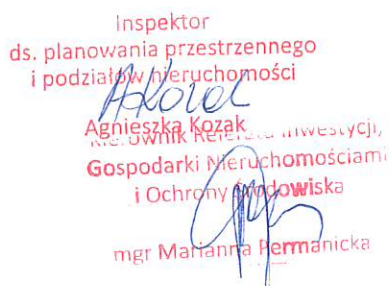 Inspektor
ds. planowania przestrzennego
i podziałów nieruchomości
AKozak
Agnieszka Kozak
Kierownik Referatu Inwestycji,
Gospodarki Nieruchomościami
i Ochrony Środowiska
mgr Marianna Permanicka